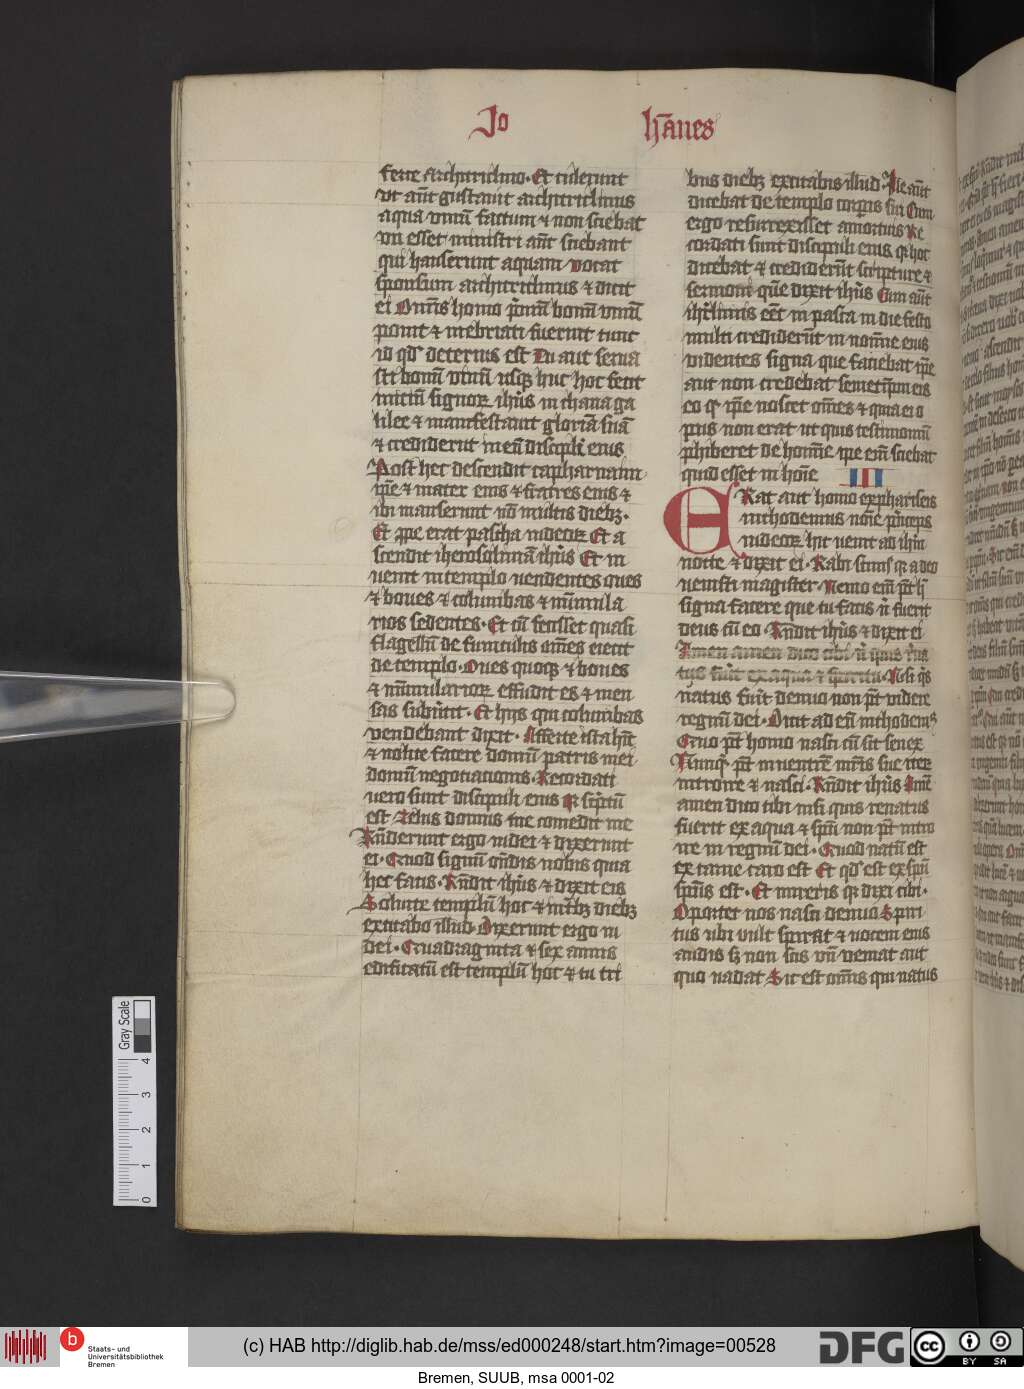 Jo hānes
ferte Architriclino. Et tulerunt
vt aūt gustauit architriclinus
aqua vinū factum ⁊ non sciebat
vn esset ministri aūt sciebant
qui hauserunt aquam vocat
sponsum architriclinus & dicit
ei Omīs homo pͥmū bonū vinū
ponit ⁊ inebriati fuerint tunc
id qd̕ deterius est Tu aut serua
sti bonū vinū usqꝫ huc hoc fecit
iniciū signoꝝ ihu̅s in chana ga
lilee ⁊ manifestauit gloriā suā
⁊ crediderūt in eū discipl̕i eius.
Post hec descendit capharnaim
ip̄e ⁊ mater eius ⁊ fratres eius ⁊
ibi manserunt nō multis diebꝫ.
Et ꝓpe erat pascha iudeoꝝ Et a
scendit iherosolimā ihu̅s Et in
uenit in templo uendentes oues
⁊ boues ⁊ columbas ⁊ nūmula
rios sedentes. Et cū fecisset quasi
flagellū de funiculis om̄es eiecit
de templo. Oues quoqꝫ & boues
⁊ nūmularioꝝ effudit es ⁊ men
sas subu̕tit. Et hijs qui columbas
vendebant dixit. Afferte ista hīc
⁊ nolite facere domū patris mei
domū negotiacionis. Recordati
uero sunt discipuli eius qꝫ sc̕ptū
est Zelus domus tue comedit me
Rn̄derunt ergo iudei & dixerunt
ei. Quod signū on̄dis nobis quia
hec facis. Rn̄dit ihu̅s & dixit eis
Soluite templū hoc & in tͥbꝫ diebꝫ
excitabo illud. Dixerunt ergo iu
dei. Quadraginta & sex annis
edificatū est templū hoc & tu tri
bus diebꝫ excitabis illud. Ille aūt
dicebat de templo corꝑis sui Cum
ergo resurrexisset amortuis Re
cordati sunt discipuli eius qꝫ hoc
dicebat & crediderūt scripture ⁊
sermoni quē dixit ihu̅s Cum aūt
ihr̄limis eēt in pasca in die festo
multi crediderūt in noīne eius
videntes signa que faciebat ip̄e
aut non credebat semetip̄m eis
eo qꝫ ip̄e nosset om̄es & quia ei o
pus non erat ut quis testimoniū
ꝑhiberet de hoīne ip̄e em̄ sciebat
quid esset in hoīe III
ERat aut homo ex phariseis
nichodemus noīe pͥnceps
iudeoꝝ hic uenit ad ihm̄
nocte & dixit ei. Rabi scimꝰ qꝫ a deo
uenisti magister. Nemo em̄ pt̄ h̄
signa facere que tu facis n̄ fuerit
deus cū eo. Rn̄dit ihu̅s & dixit ei
Amen amen dico tibi n̄ quis rͤna
tus fūit ex aqua & spiritu. Nisi qͥs
natus fūit denuo non pt̄ videre
regnū dei. Dicit ad eū nichodemꝰ
Quo pt̄ homo nasci cū sit senex
Nunqͥd pt̄ in uentrē mr̄is sue iteꝝ
introire & nasci. Rn̄dit ihu̅s Amē
amen dico tibi nisi quis renatus
fuerit ex aqua ⁊ spū non pt̄ intro
ire in regnū dei. Quod natū est
ex carne caro est Et qd̕ est ex spū
spūs est. Et mireris qꝫ dixi tibi.
Oportet nos nasci denuo Spiri
tus ubi vult spirat ⁊ uocem eius
audis sꝫ non scis vn̄ veniat aut
quo uadat Sic est om̄is qui natus
Gray Scale
4
3
2
1
0
b
Staats- und
Universitätsbibliothek
Bremen
(c) HAB http://diglib.hab.de/mss/ed000248/start.htm?image=00528
DFG
cc
BY SA
Bremen, SUUB, msa 0001-02